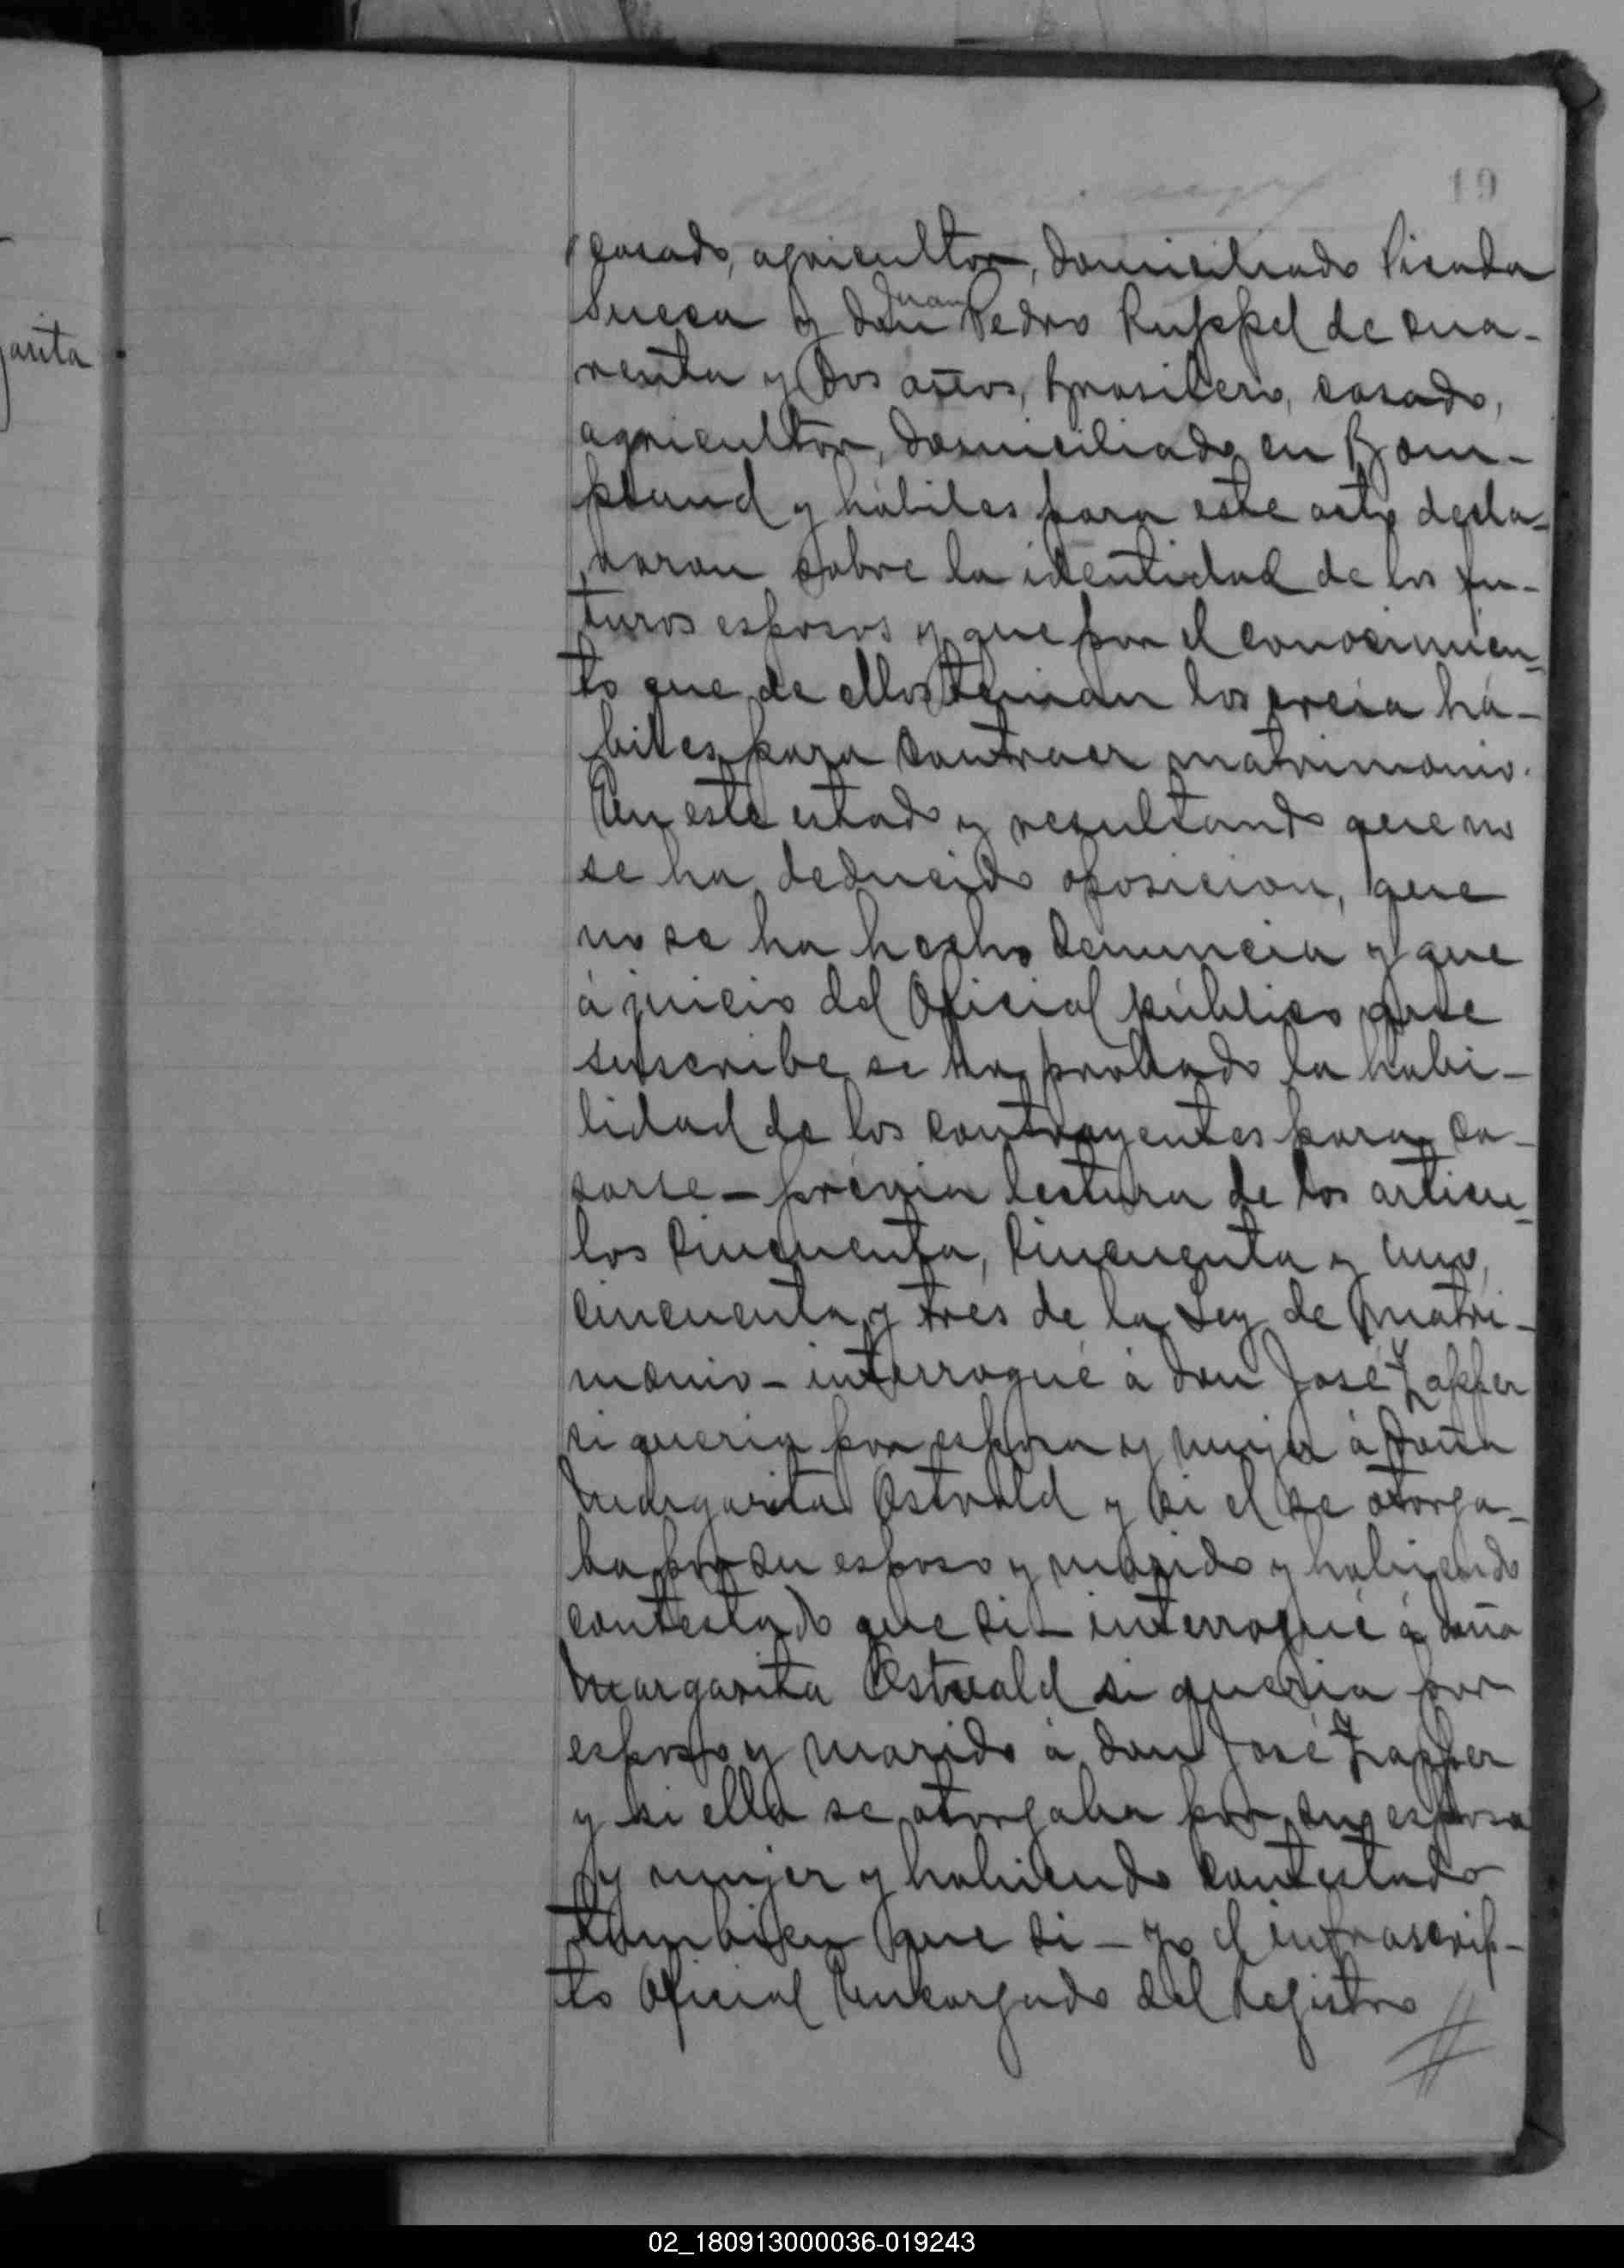 19
casado, agricultor, domiciliado Picada
Sueca y don Juan Pedro Ruppel de cua-
renta y dos años, brasilero, casado,
agricultor, domiciliado en Bom-
pland y hábiles para este acto decla-
raron sobre la identidad de los fu-
turos esposos y que por el conocimien-
to que de ellos tenian los creia há-
biles para contraer matrimonio.
En este estado y resultando que no
se ha deducido oposicion, que
no se ha hecho denuncia y que
á juicio del Oficial público que
suscribe se ha probado la habi-
lidad de los contrayentes para ca-
sarse - prévia lectura de los articu-
los cincuenta, cincuenta y uno,
cincuenta y tres de la Ley de Matri-
monio - interrogué á don José Zapfer
si queria por esposa y mujer á doña
Margarita Ostvald y si el se otorga-
ba por su esposo y marido y habiendo
contestado que si - interrogué á doña
Margarita Ostvald si queria por
esposo y marido á don José Zapfer
y si ella se otorgaba por su esposa
y mujer y habiendo contestado
tambien que si - yo el infrascrip-
to Oficial Encargado del Registro
garita
02_180913000036-019243